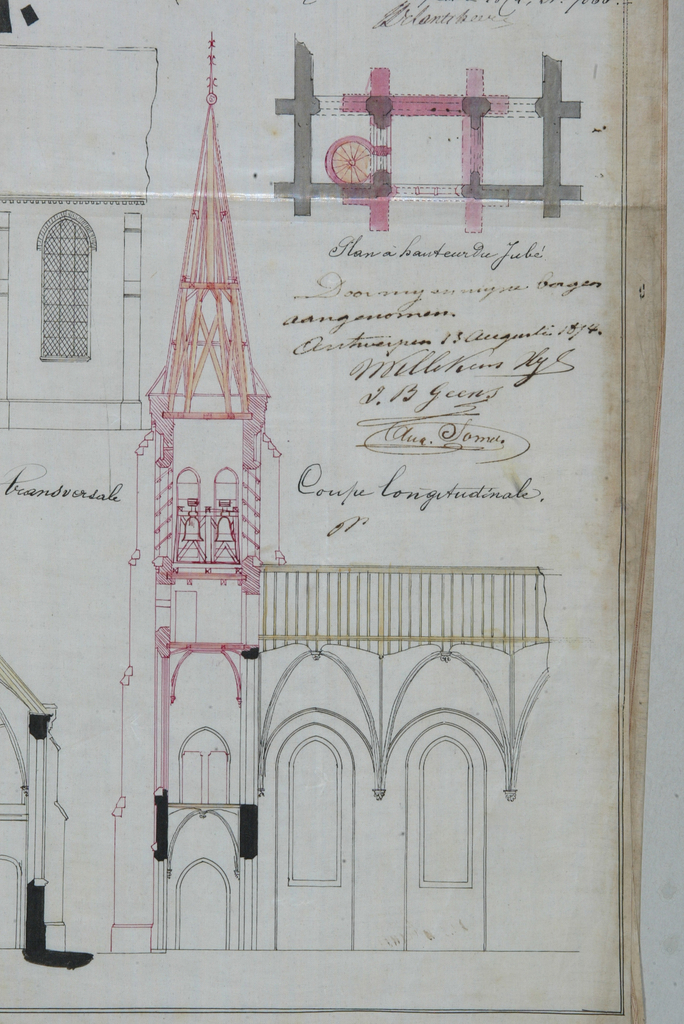 Delantshove
Plan à hauteur du Jubé
Door my en myne borgen
aangenomen.
Antwerpen 13 Augusti 1874.
Willekens
J. B Geens
Aug.
transversale
Coupe longitudinale.